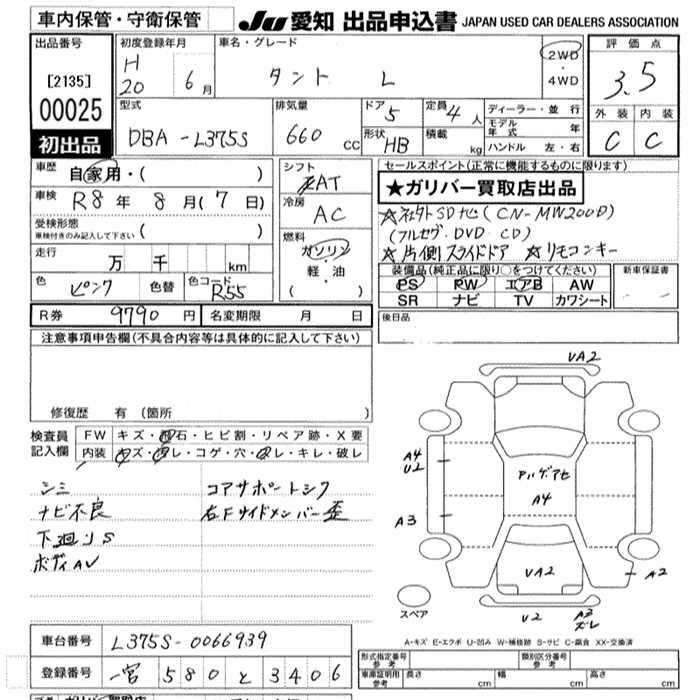 車内保管・守衛保管
JU 愛知 出品申込書 JAPAN USED CAR DEALERS ASSOCIATION
出品番号
[2135]
00025
初出品
初度登録年月
H 20 6月
車名・グレード
タント L
2WD
・
4WD
評価点
3.5
外装 内装
C C
型式
DBA-L375S
排気量
660 cc
ドア 5
形状 HB
定員 4人
積載 kg
ディーラー・並行
モデル年式 年
ハンドル 左・右
車歴
自家用・( )
車検
R8年 8月(7日)
受検形態
車検付きのみ記入して下さい ( )
走行
万 千 km
色
ピンク 色替
色コード
R55
シフト
AT
冷房
AC
燃料
ガソリン
軽・油
( )
セールスポイント(正常に機能するものに限ります)
★ガリバー買取店出品
☆社外SDナビ(CN-MW200D)
(フルセグ・DVD CD)
☆片側スライドドア ☆リモコンキー
装備品(純正品に限り○をつけてください)
PS PW エアB AW
SR ナビ TV カワシート
新車保証書
後日品
R券 9790円 名変期限 月 日
注意事項申告欄(不具合内容等は具体的に記入して下さい)
修復歴 有 (箇所 )
検査員記入欄
FW キズ・飛石・ヒビ割・リペア跡・X要
内装 キズ・汚レ・コゲ・穴・スレ・キレ・破レ
シミ
ナビ不良
下廻りS
ボディAV
コアサポートシワ
右Fサイドメンバー歪
VA2
A4
U2
A4
A3
VA2
A2
V2
A3
ズレ
スペア
A-キズ E-エクボ U-凹み W-補修跡 S-サビ C-腐食 XX-交換済
車台番号 L375S-0066939
登録番号 一宮 580 と 3406
形式指定番号
参考
類別区分番号
参考
車庫証明用
参考
長さ cm 幅 cm 高さ cm